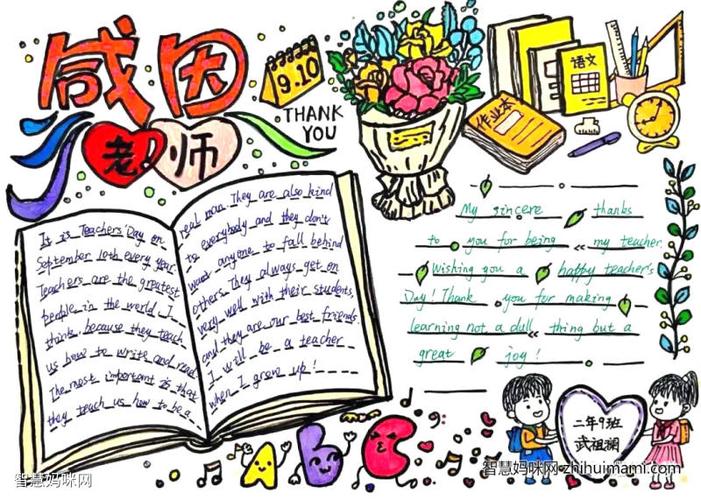 感恩
老师
9.10
THANK
YOU
语文
作业本
It is Teachers' Day on
September 10th every year.
Teachers are the greatest
people in the world, I
think, because they teach
us how to write and read
The most important is that
they teach us how to be a
real man. They are also kind
to everybody and they don't
want anyone to fall behind
others. They always get on
very well with their students,
and they are our best friends
I will be a teacher
when I grow up!
My sincere thanks
to you for being my teacher.
Wishing you a happy teacher's
Day! Thank you for making
learning not a dull thing but a
great joy!
A B C
二年9班
武祖
智慧妈咪网
智慧妈咪网 zhihuimami.com